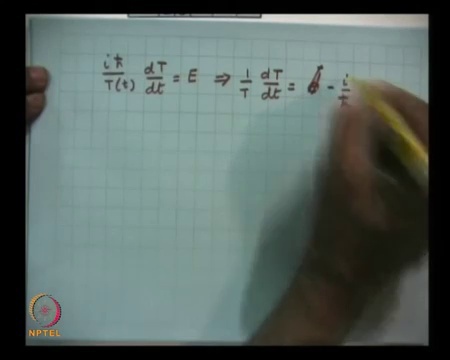 iħ/T(t) dT/dt = E ⇒ 1/T dT/dt = - i/ħ
NPTEL